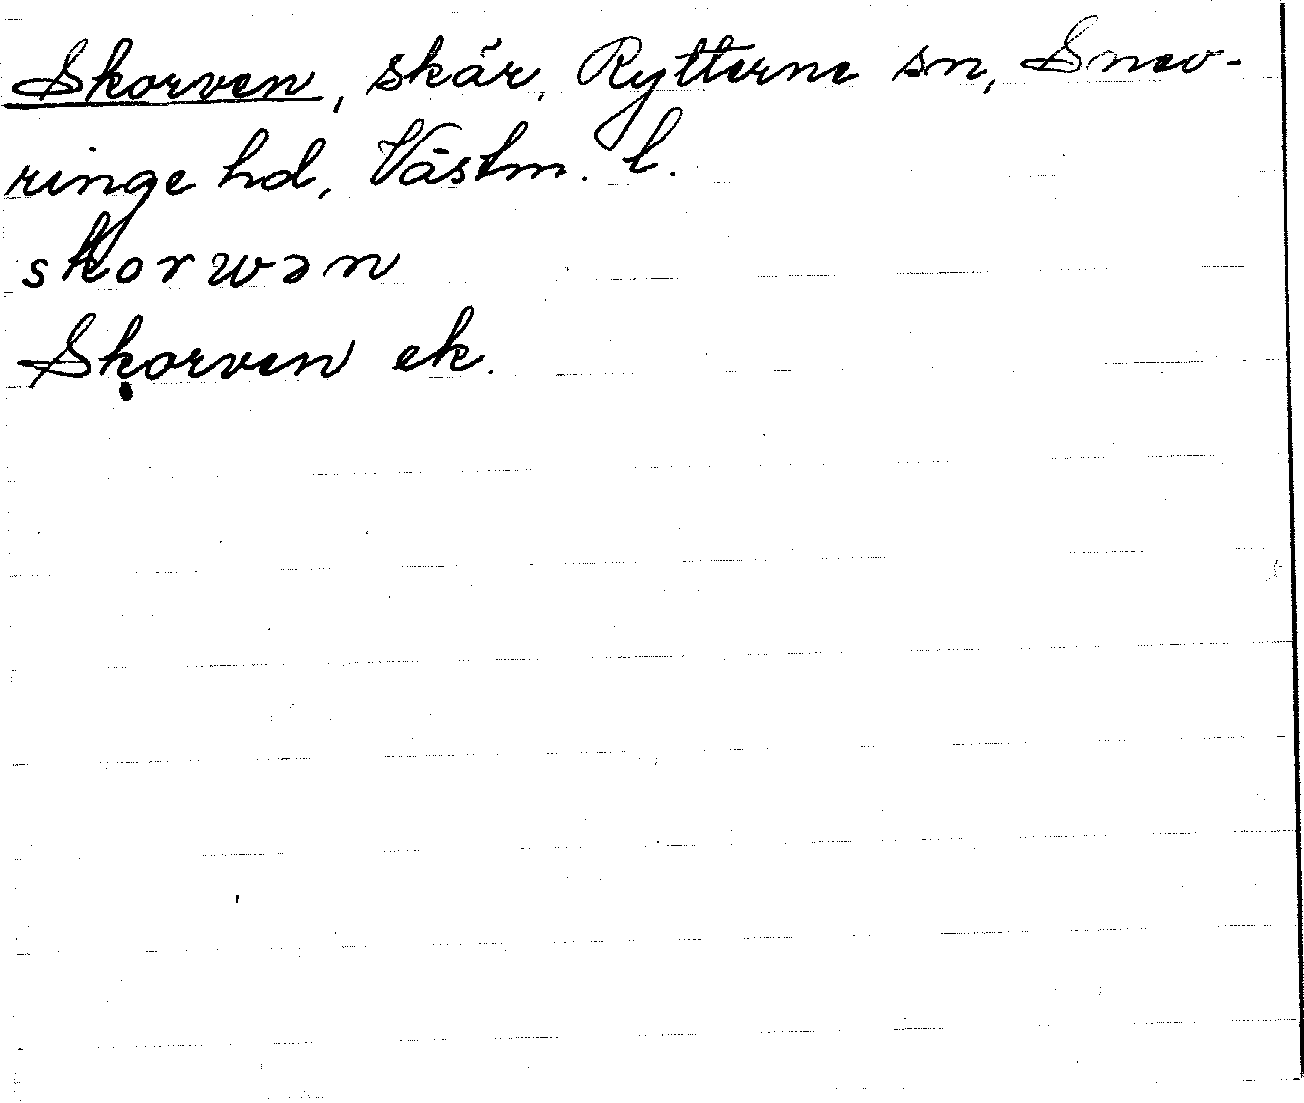 Skorven, skär, Rytterne sn, Snev-
ringe hd, Västm. l.
skorwən
Skorven ek.